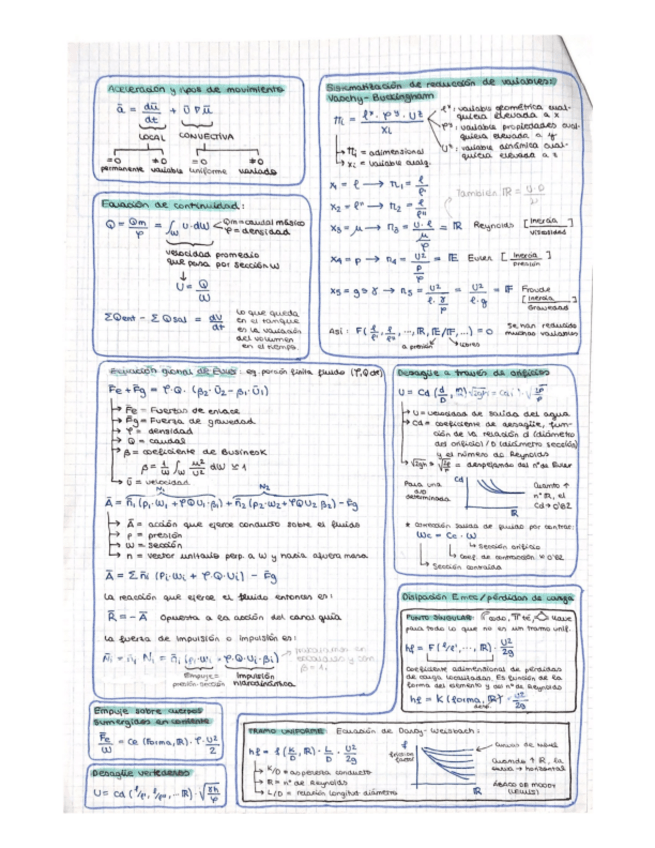 Aceleración y tipos de movimiento
ā = dū/dt + ū ∇ ū
LOCAL CONVECTIVA
=0 ≠0 =0 ≠0
permanente variable uniforme variado
Ecuación de continuidad:
Q = Qm/φ = ∫ω U·dω
Qm = caudal másico
φ = densidad
velocidad promedio
que pasa por sección ω
U = Q/ω
ΣQent - ΣQsal = dV/dt
Lo que queda
en el tanque
es la variación
del volumen
en el tiempo.
Sistematización de reducción de variables:
Vaschy-Buckingham
πi = ℓˣ·φʸ·Uᶻ / Xi
ℓˣ: variable geométrica cual-
quiera elevada a x
φʸ: variable propiedades cual-
quiera elevada a y
Uᶻ: variable dinámica cual-
quiera elevada a z
πi = adimensional
xi = variable
x₁ = ℓ → π₁ = ℓ/ℓ'
También R = U·D/ν
x₂ = ℓ'' → π₂ = ℓ/ℓ''
x₃ = μ → π₃ = U·ℓ/(μ/φ) = R Reynolds [Inercia/viscosidad]
x₄ = p → π₄ = U²/(p/φ) = E Euler [Inercia/presión]
x₅ = g → π₅ = U²/(ℓ·γ/φ) = U²/(ℓ·g) = F Froude [Inercia/Gravedad]
Así: F(ℓ/ℓ', ℓ/ℓ'', ..., R, E/F, ...) = 0
Se han reducido
muchas variables
Ecuación global de Euler: eq. porción finita fluido (φ, Q cte)
F̄e + F̄g = φ·Q·(β₂·Ū₂ - β₁·Ū₁)
F̄e = Fuerzas de enlace
F̄g = Fuerza de gravedad
φ = densidad
Q = caudal
β = coeficiente de
β = 1/ω ∫ω u²/U² dω ≈ 1
ū = velocidad
N₁ N₂
Ā = n̄₁(p₁·ω₁ + φQU₁β₁) + n̄₂(p₂·ω₂ + φQU₂β₂) - F̄g
Ā = acción que ejerce conducto sobre el fluido
p = presión
ω = sección
n = vector unitario perp. a ω y hacia afuera masa
Ā = Σ n̄i (Pi·ωi + φ·Q·Ui) - F̄g
La reacción que ejerce el fluido entonces es:
R̄ = -Ā Opuesta a la acción del canal guía
La fuerza de impulsión o impulsión es:
N̄i = n̄i Ni = n̄i (pi·ωi + φ·Q·Ui·βi)
Empuje =
presión·sección
Impulsión
hidrodinámica
Desagüe a través de orificios
U = Cd
U = velocidad de salida del agua
Cd = coeficiente de desagüe, fun-
ción de la relación d (diámetro
del orificio) / D (diámetro sección)
y el número de Reynolds
= despejando del nº de Euler
Para una
determinada
Cd
R
Cuanto ↑
nº R, el
Cd → 0'62
* Corrección salida de fluido por contrac:
ωc = Cc·ω
Sección orificio
Coef. de contracción ≈ 0'62
Sección contraída
Disipación E mec / pérdidas de carga
PUNTO SINGULAR: codo, té, llave
para todo lo que no es un tramo unif.
hf = F(ℓ/ℓ', ..., R)·U²/2g
Coeficiente adimensional de pérdidas
de carga localizadas. Es función de la
forma del elemento y del nº de Reynolds
hf = K(forma, R)·U²/2g
Empuje sobre cuerpos
sumergidos en corriente
Fe/ω = Ce(forma, R)·φ·U²/2
Desagüe vertederos
TRAMO UNIFORME Ecuación de Darcy-Weisbach:
hf = f(K/D, R)·L/D·U²/2g
K/D = aspereza conducto
R = nº de Reynolds
L/D = relación longitud diámetro
f
R
Cuando ↑ R, la
curva → horizontal
ÁBACO DE MOODY